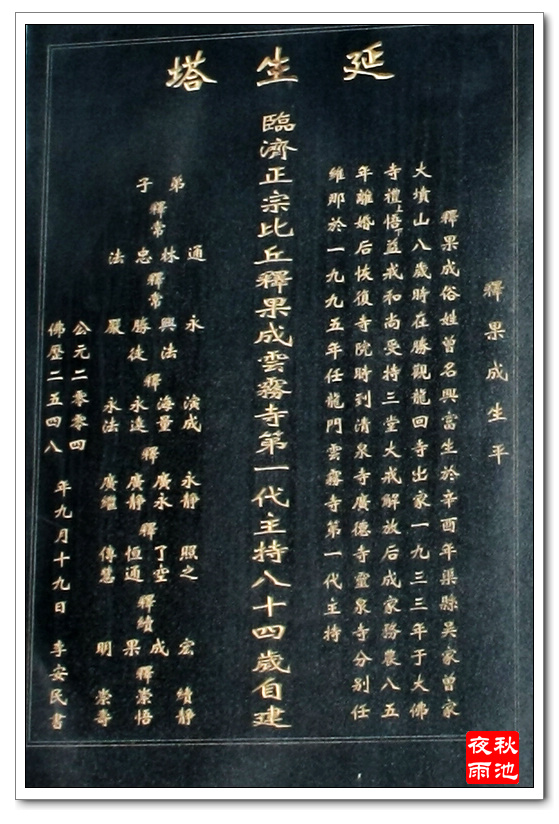 延生塔
釋果成生平
釋果成俗姓曾名興富生於辛酉年渠縣吳家曾家
大墳山八歲時在勝觀龍回寺出家一九三三年于大佛
寺禮上悟下益戒和尚受持三堂大戒解放后成家務農八五
年離婚后恢復寺院時到清泉寺廣德寺靈泉寺分別任
維那於一九九五年任龍門雲霧寺第一代主持
臨濟正宗比丘釋果成雲霧寺第一代主持八十四歲自建
弟子
釋常 通 林 忠 法
釋常 永 興法 勝徒 嚴
釋 演成 海量 永遠 永法
釋 永靜 廣永 廣靜 廣繼
釋 照之 了空 恒通 傳慧
釋續 宏 成 果 明
釋崇悟 續靜 崇壽
公元二零零四
佛歷二五四八
年九月十九日 李安民書
秋池
夜雨